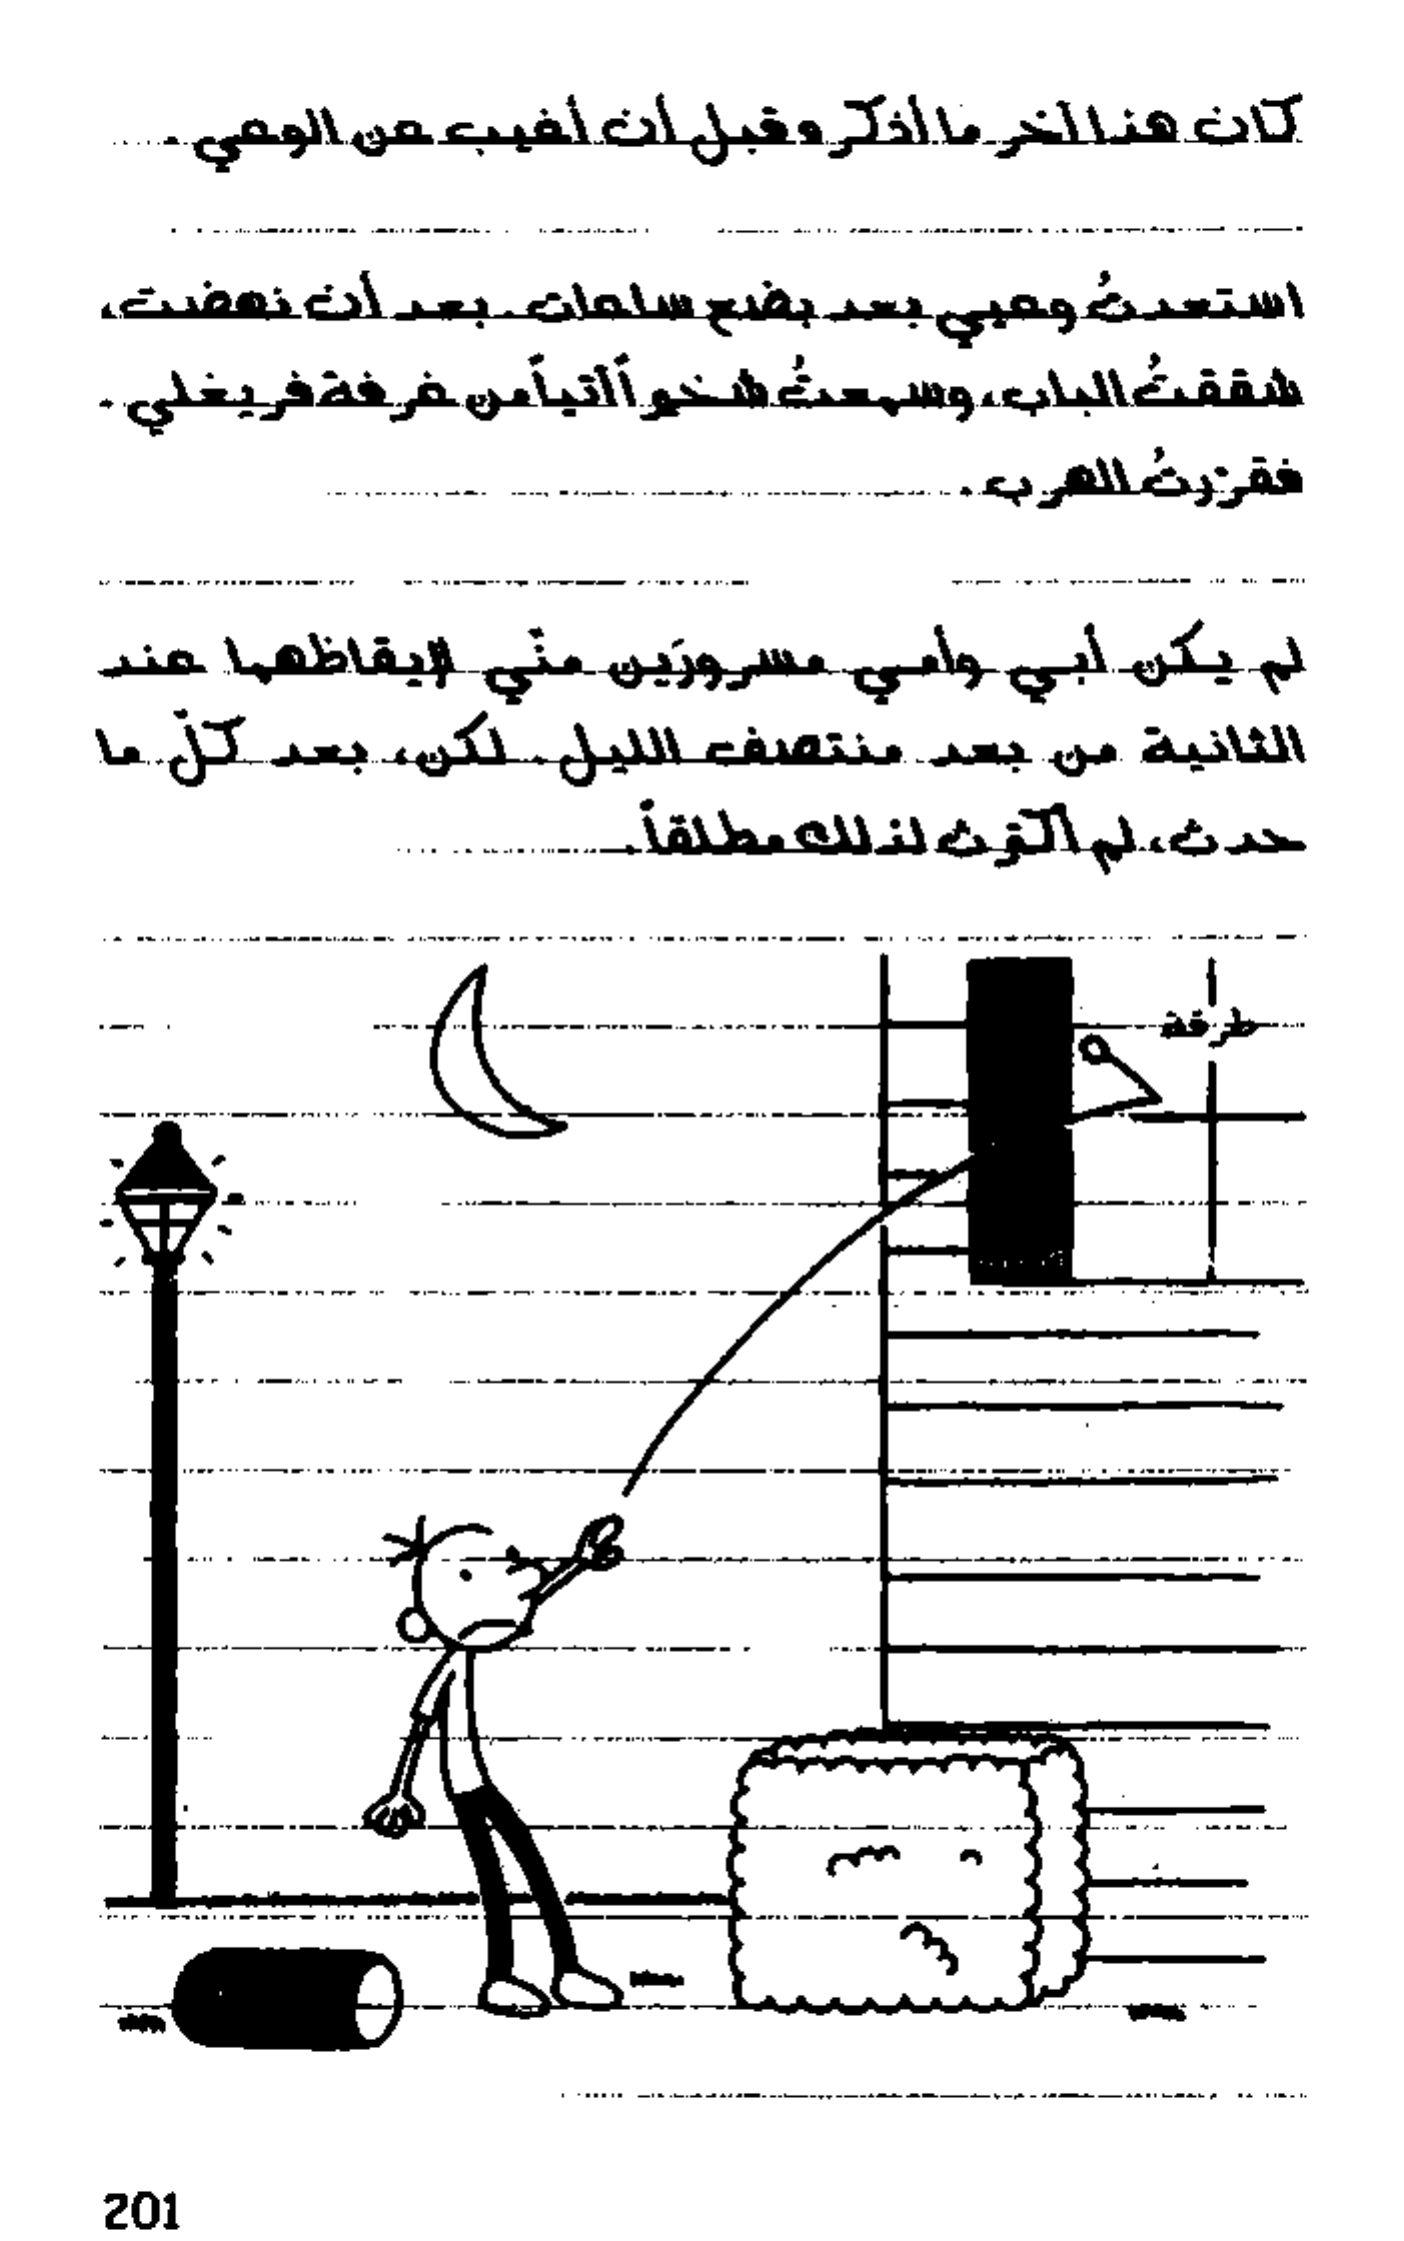 كان هذا آخر ما أذكره قبل أن أغيب عن الوعي.
استعدتُ وعيي بعد بضع ساعات. بعد أن نهضت،
شققتُ الباب، وسمعتُ شخيراً آتياً من غرفة فريغلي.
فقررتُ الهرب.
لم يكن أبي وأمي مسرورَين منّي لإيقاظهما عند
الثانية من بعد منتصف الليل. لكن، بعد كلّ ما
حدث، لم أكترث لذلك مطلقاً.
طرقة
201